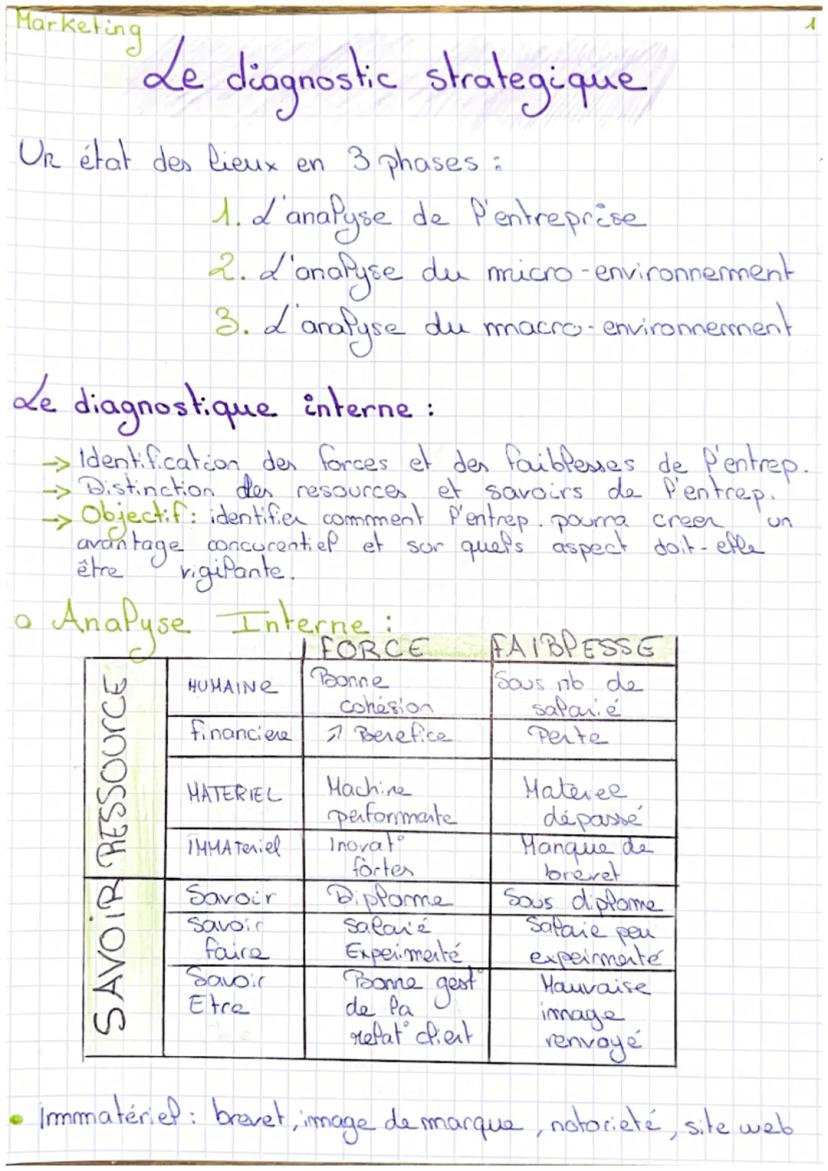 Marketing
1
Le diagnostic strategique
Un état des lieux en 3 phases :
1. L'analyse de l'entreprise
2. L'analyse du micro-environnement
3. L'analyse du macro-environnement
Le diagnostique interne :
→ Identification des forces et des faiblesses de l'entrep.
→ Distinction des resources et savoirs de l'entrep.
→ Objectif : identifier comment l'entrep. pourra creer un
avantage concurentiel et sur quels aspect doit-elle
être vigilante.
Analyse Interne :
FORCE FAIBLESSE
RESSOURCE
HUMAINE Bonne cohésion Sous nb de salarié
financiere ↗ Benefice Perte
MATERIEL Machine performante Materiel dépassé
IMMATeriel Inovat° fortes Manque de brevet
SAVOIR
Savoir Diplome Sous diplome
Savoir faire Salarié Experimenté Salarie peu experimenté
Savoir Etre Bonne gest° de la relat° client Mauvaise image renvoyé
• Immatériel : brevet, image de marque, notorieté, site web